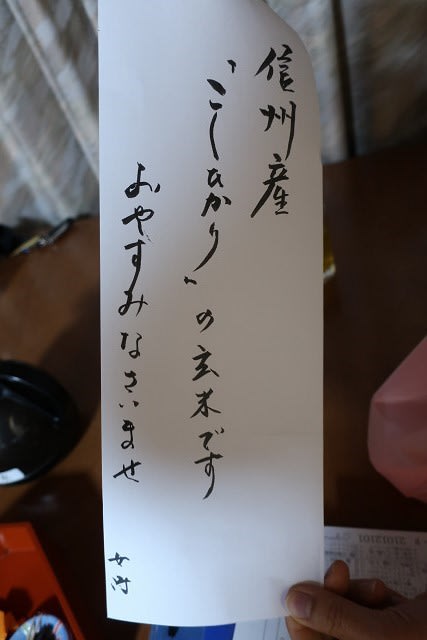 信州産
"こしひかり"の玄米です
おやすみなさいませ
女将